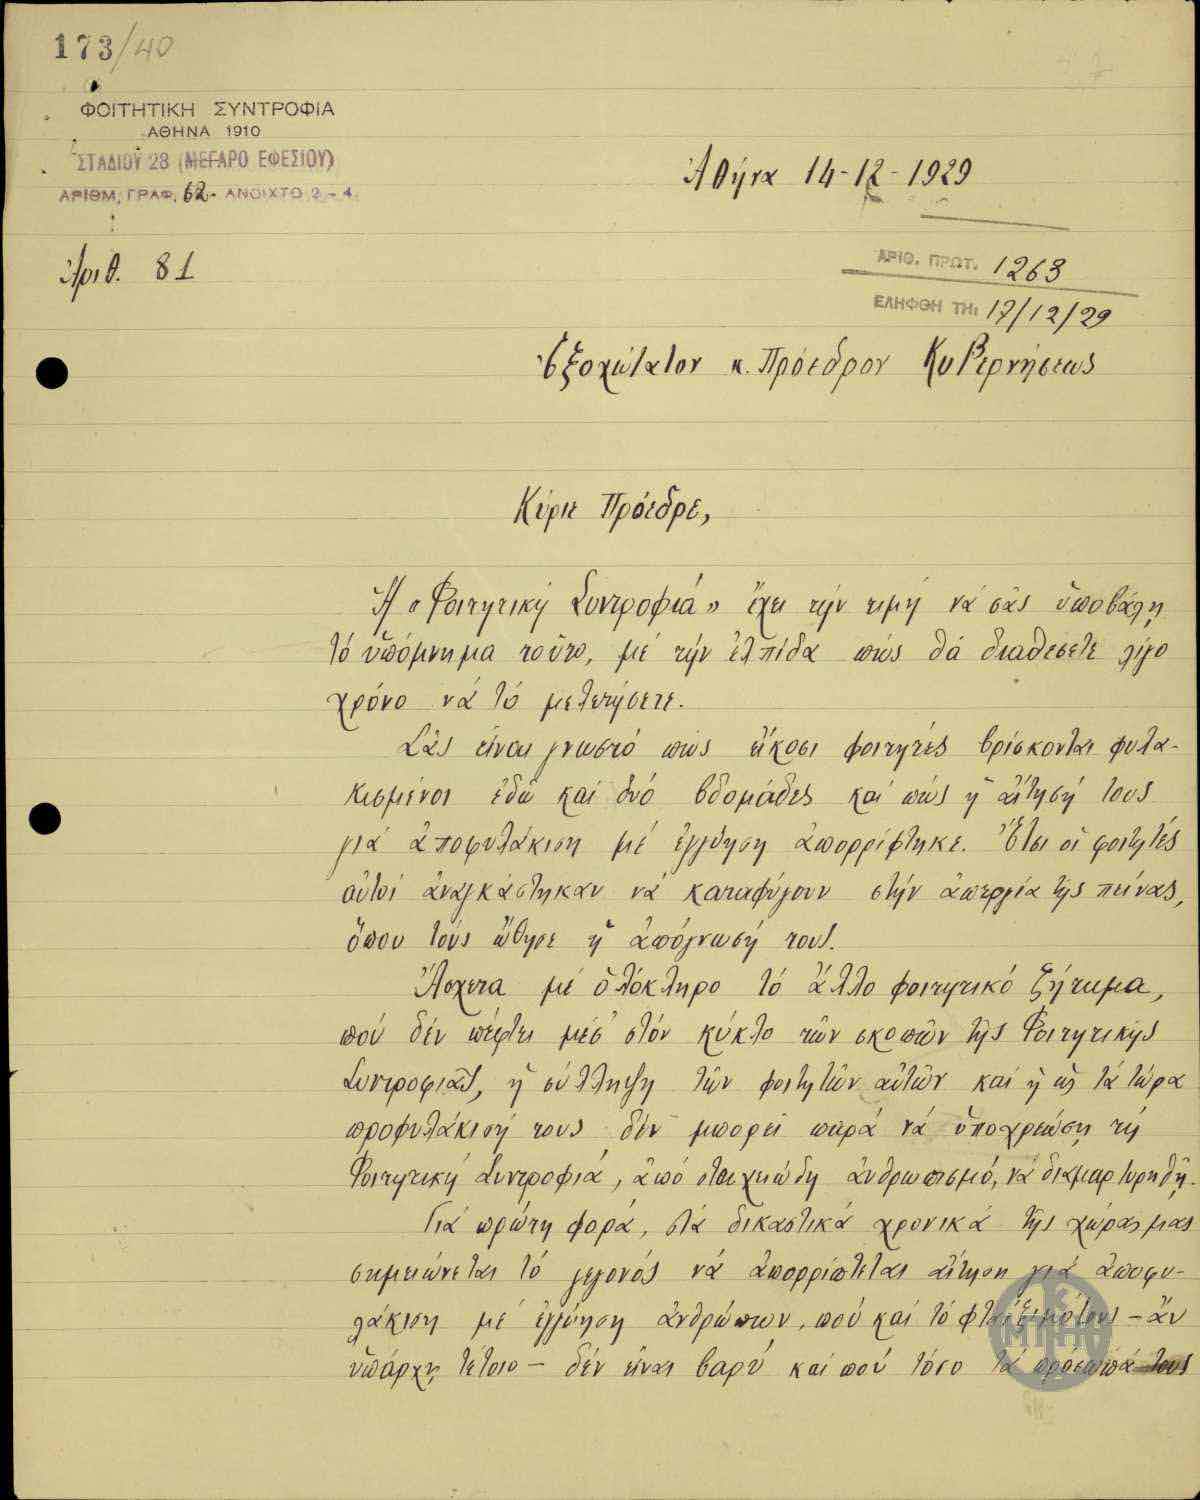 173/40
ΦΟΙΤΗΤΙΚΗ ΣΥΝΤΡΟΦΙΑ
ΑΘΗΝΑ 1910
ΣΤΑΔΙΟΥ 28 (ΜΕΓΑΡΟ ΕΦΕΣΙΟΥ)
ΑΡΙΘΜ. ΓΡΑΦ. 62- ΑΝΟΙΧΤΟ 2 - 4.
Ἀθήνα 14-12-1929
Ἀριθ. 81
ΑΡΙΘ. ΠΡΩΤ. 1263
ΕΛΗΦΘΗ ΤΗ: 17/12/29
Ἐξοχώτατον κ. Πρόεδρον Κυβερνήσεως
Κύριε Πρόεδρε,
Ἡ «Φοιτητική Συντροφιά» ἔχει τήν τιμή νά σᾶς ὑποβάλῃ
τό ὑπόμνημα τοῦτο, μέ τήν ἐλπίδα πώς θά διαθέσετε λίγο
χρόνο νά τό μελετήσετε.
Σᾶς εἶναι γνωστό πώς εἴκοσι φοιτητές βρίσκονται φυλα-
κισμένοι ἐδῶ καί δυό βδομάδες καί πώς ἡ αἴτησή τους
γιά ἀποφυλάκιση μέ ἐγγύηση ἀπορρίφτηκε. Ἔτσι οἱ φοιτητές
αὐτοί ἀναγκάστηκαν νά καταφύγουν στήν ἀπεργία τῆς πείνας,
ὅπου τούς ὤθησε ἡ ἀπόγνωσή τους.
Ἄσχετα μέ ὁλόκληρο τό ἄλλο φοιτητικό ζήτημα,
πού δέν πέφτει μέσ' στόν κύκλο τῶν σκοπῶν τῆς Φοιτητικῆς
Συντροφιᾶς, ἡ σύλληψη τῶν φοιτητῶν αὐτῶν καί ἡ ὥς τά τώρα
προφυλάκισή τους δέν μπορεῖ παρά νά ὑποχρεώσῃ τή
Φοιτητική Συντροφιά, ἀπό στοιχειώδη ἀνθρωπισμό, νά διαμαρτυρηθῇ.
Γιά πρώτη φορά, στά δικαστικά χρονικά τῆς χώρας μας
σημειώνεται τό γεγονός νά ἀπορρίπτεται αἴτηση γιά ἀποφυ-
λάκιση μέ ἐγγύηση ἀνθρώπων, πού καί τό φταίξιμό τους - ἄν
ὑπάρχῃ τέτοιο - δέν εἶναι βαρύ καί πού τόσο τά πρόσωπά τους